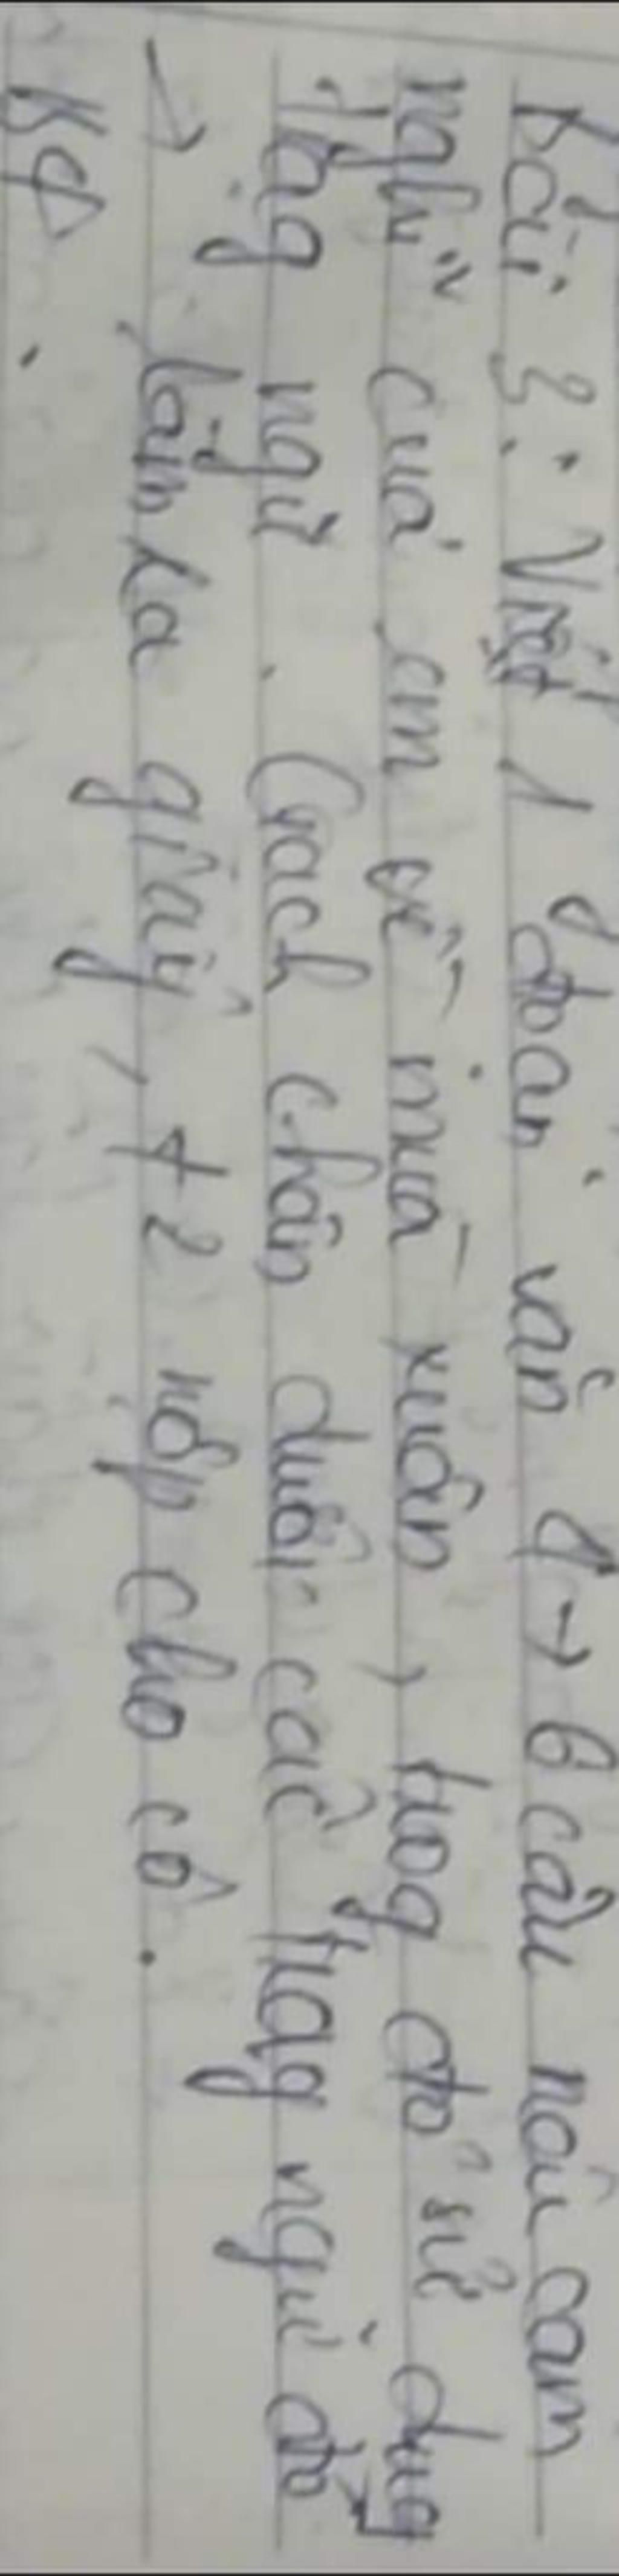 Bài 3: Viết 1 đoạn văn 4 → 6 câu nêu cảm
nghĩ của em về mùa xuân, trog đó sử dụg
trạg ngữ. Gạch chân dưới các trạg ngữ đó
→ làm ra giấy, t2 nộp cho cô.